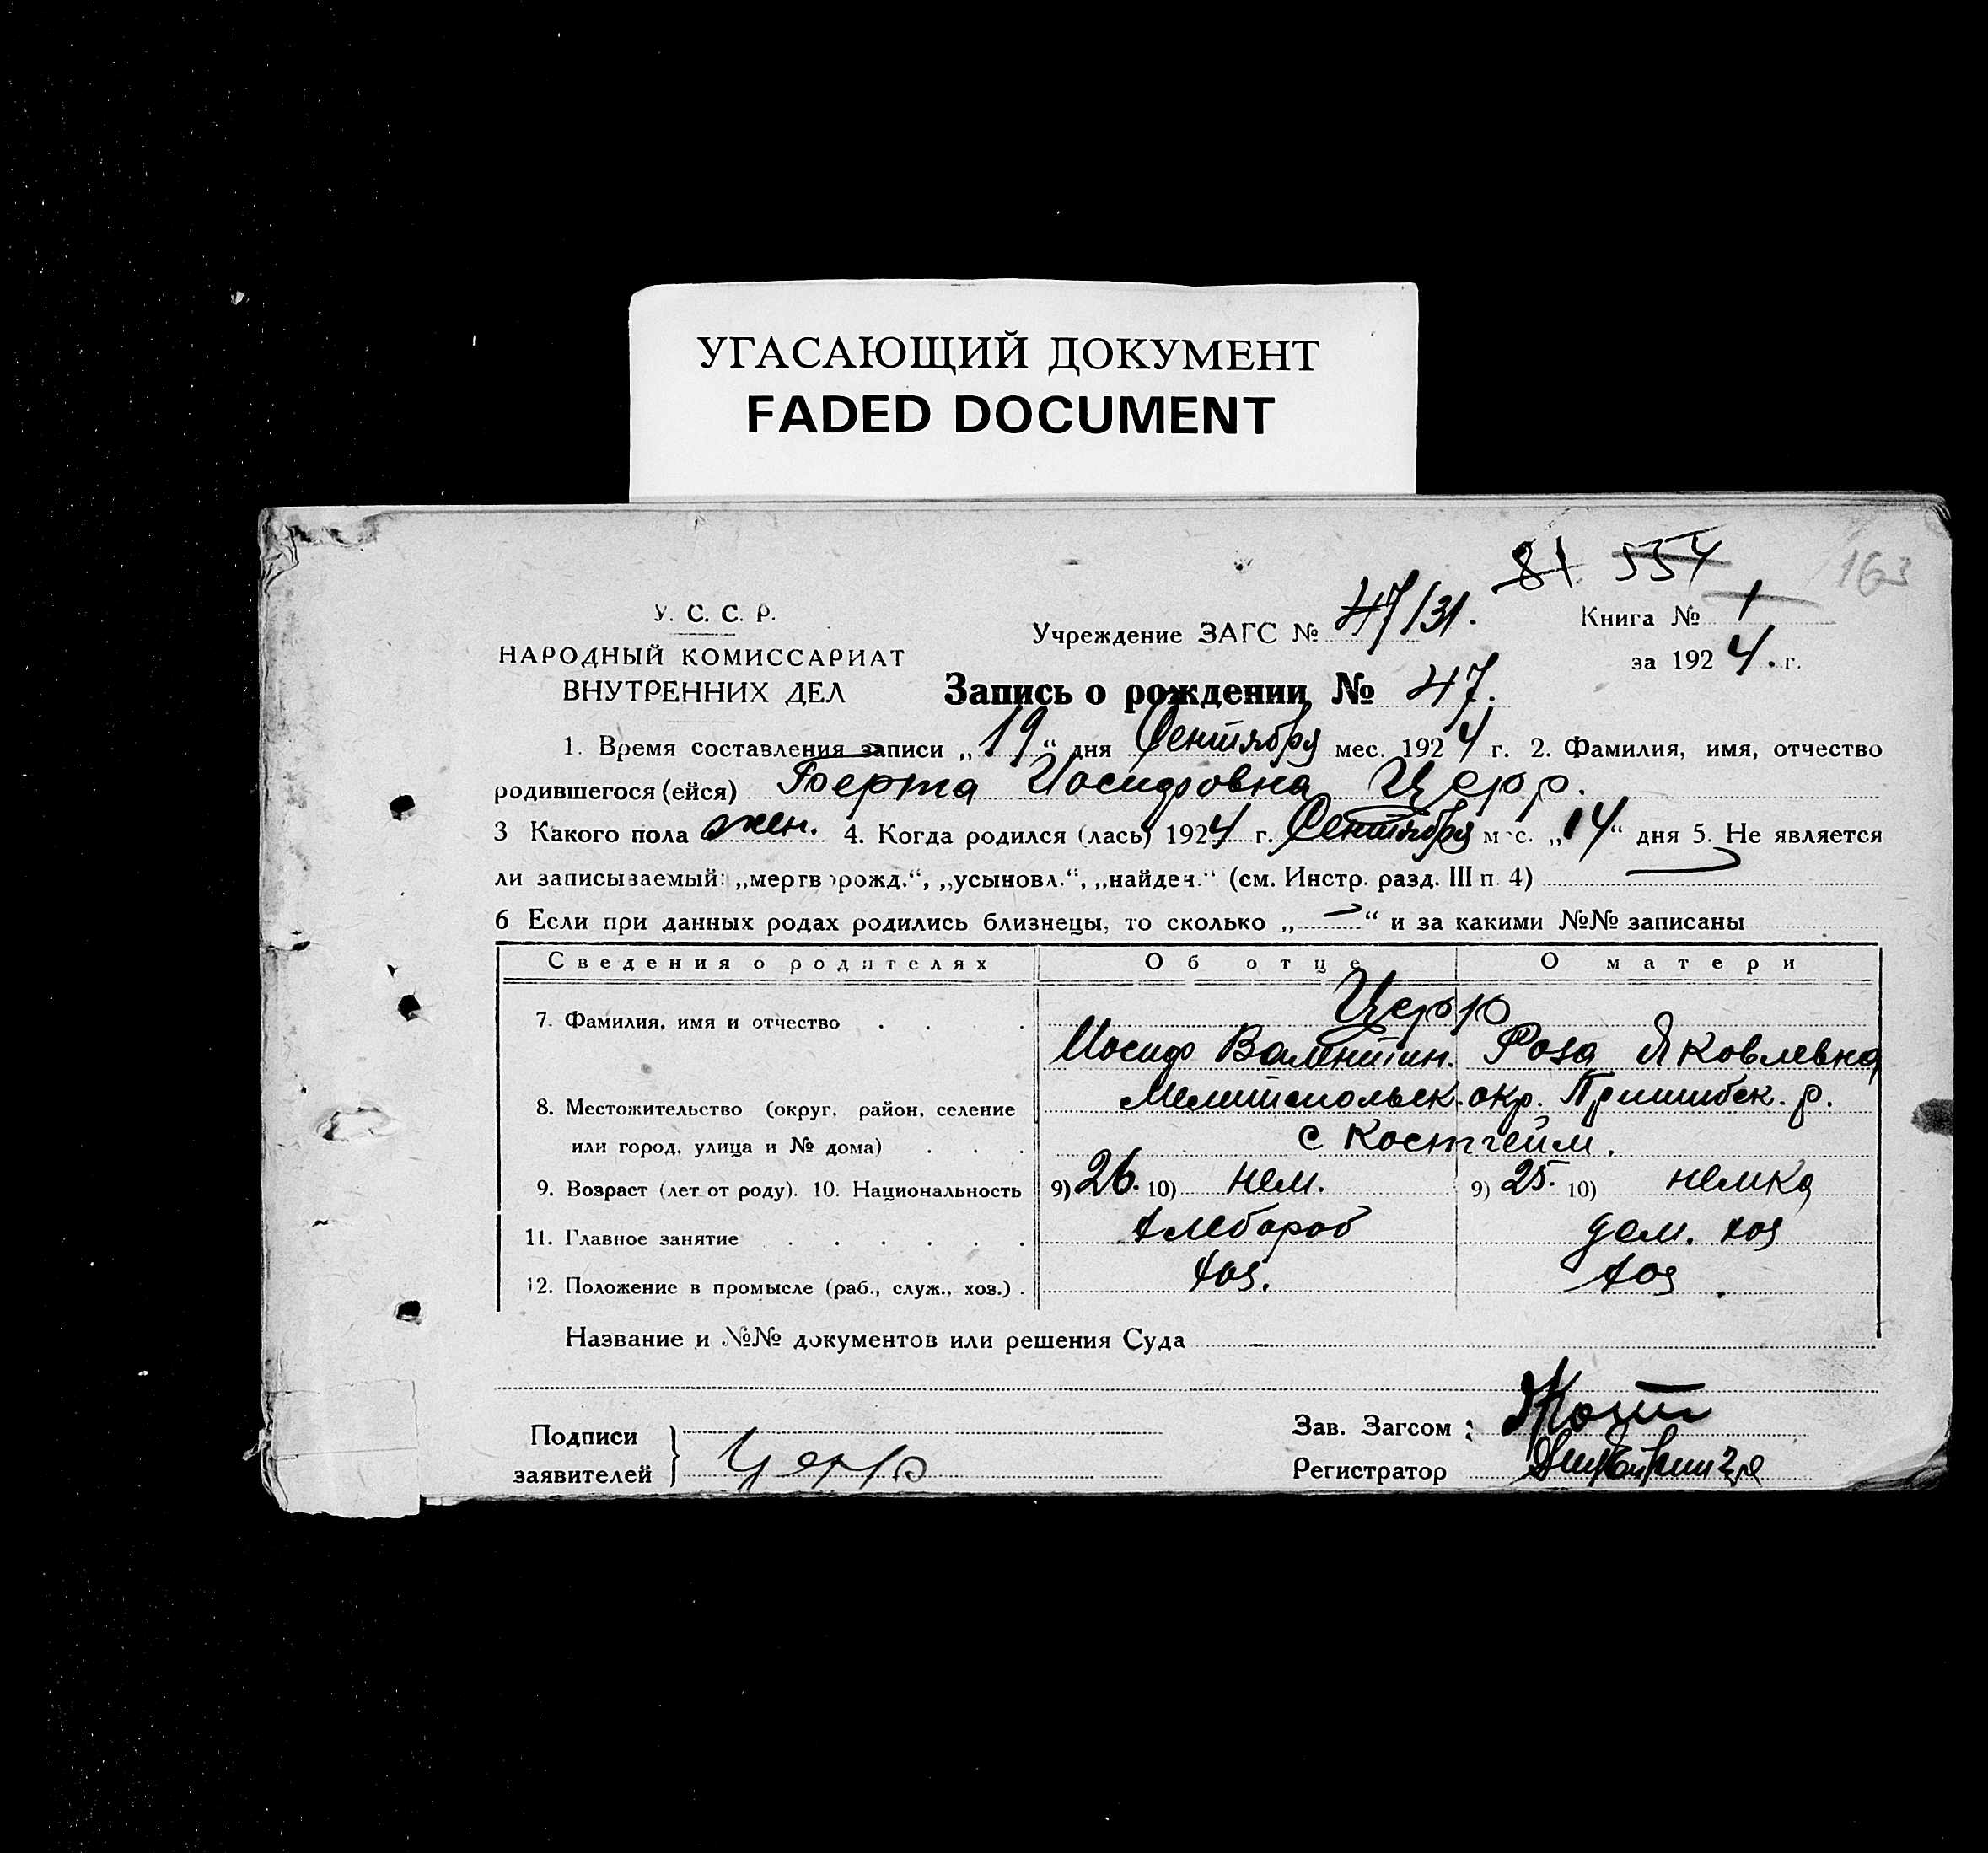 УГАСАЮЩИЙ ДОКУМЕНТ
FADED DOCUMENT
81 554 163
У. С. С. Р.
НАРОДНЫЙ КОМИССАРИАТ
ВНУТРЕННИХ ДЕЛ
Учреждение ЗАГС № 47/31.
Книга № 1
за 1924. г.
Запись о рождении № 47.
1. Время составления записи „19“ дня Сентября мес. 1924 г. 2. Фамилия, имя, отчество
родившегося (ейся) Берта Иосифовна Церр.
3 Какого пола жен. 4. Когда родился (лась) 1924 г. Сентября мес. „14“ дня 5. Не является
ли записываемый: „мертворожд.“, „усыновл.“, „найден.“ (см. Инстр. разд. III п. 4)
6 Если при данных родах родились близнецы, то сколько „—“ и за какими №№ записаны
Сведения о родителях Об отце О матери
Церр
7. Фамилия, имя и отчество Иосиф Валентин. Роза Яковлевна
8. Местожительство (округ, район, селение Мелитопольск. окр. Пришибск. р.
или город, улица и № дома) с Костгейм.
9. Возраст (лет от роду). 10. Национальность 9) 26. 10) нем. 9) 25. 10) немка
11. Главное занятие хлебороб дом. хоз
12. Положение в промысле (раб., служ., хоз.) хоз. хоз.
Название и №№ документов или решения Суда
Подписи
заявителей } Церр
Зав. Загсом:
Регистратор